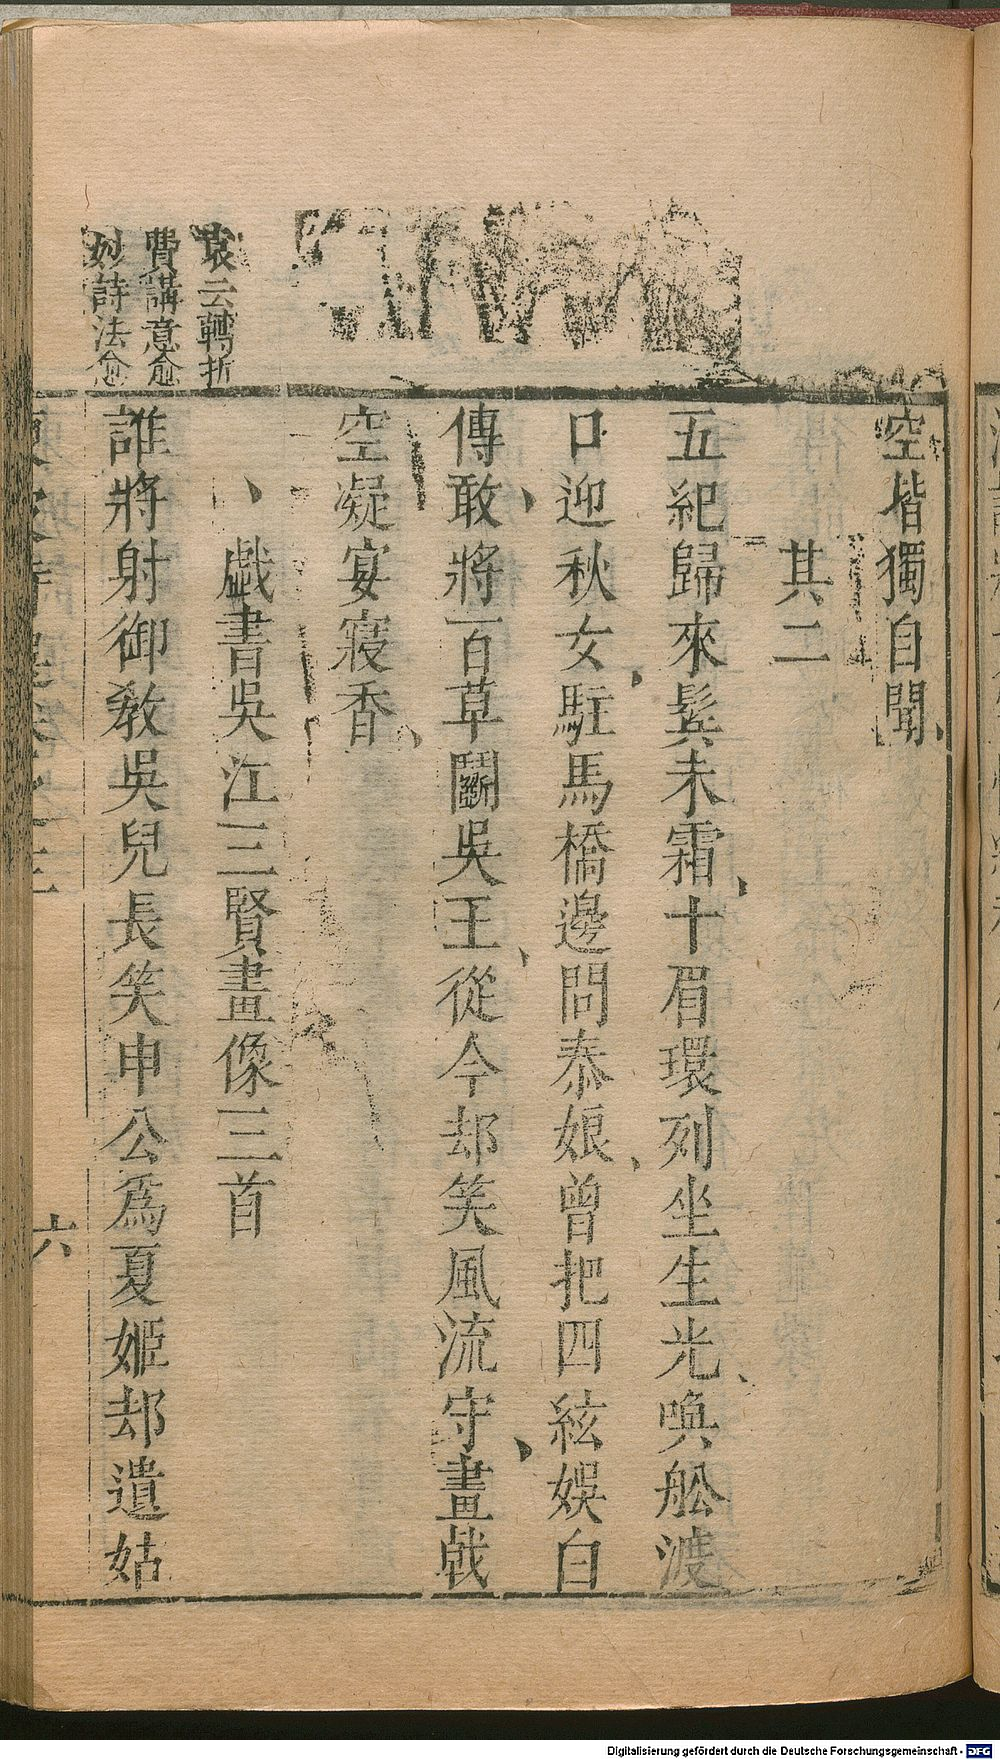 空堦獨自聞
其二
五紀歸來鬂未霜十眉環列坐生光喚船渡
口迎秋女駐馬橋邊問泰娘曾把四絃娛白
傳敢將百草鬭吳王從今却笑風流守畫戟
空凝宴寢香
戲書吳江三賢畫像三首
誰將射御敎吳兒長笑申公爲夏姬却遺姑
袁云轉折
費講意愈
妙詩法愈
六
Digitalisierung gefördert durch die Deutsche Forschungsgemeinschaft - DFG